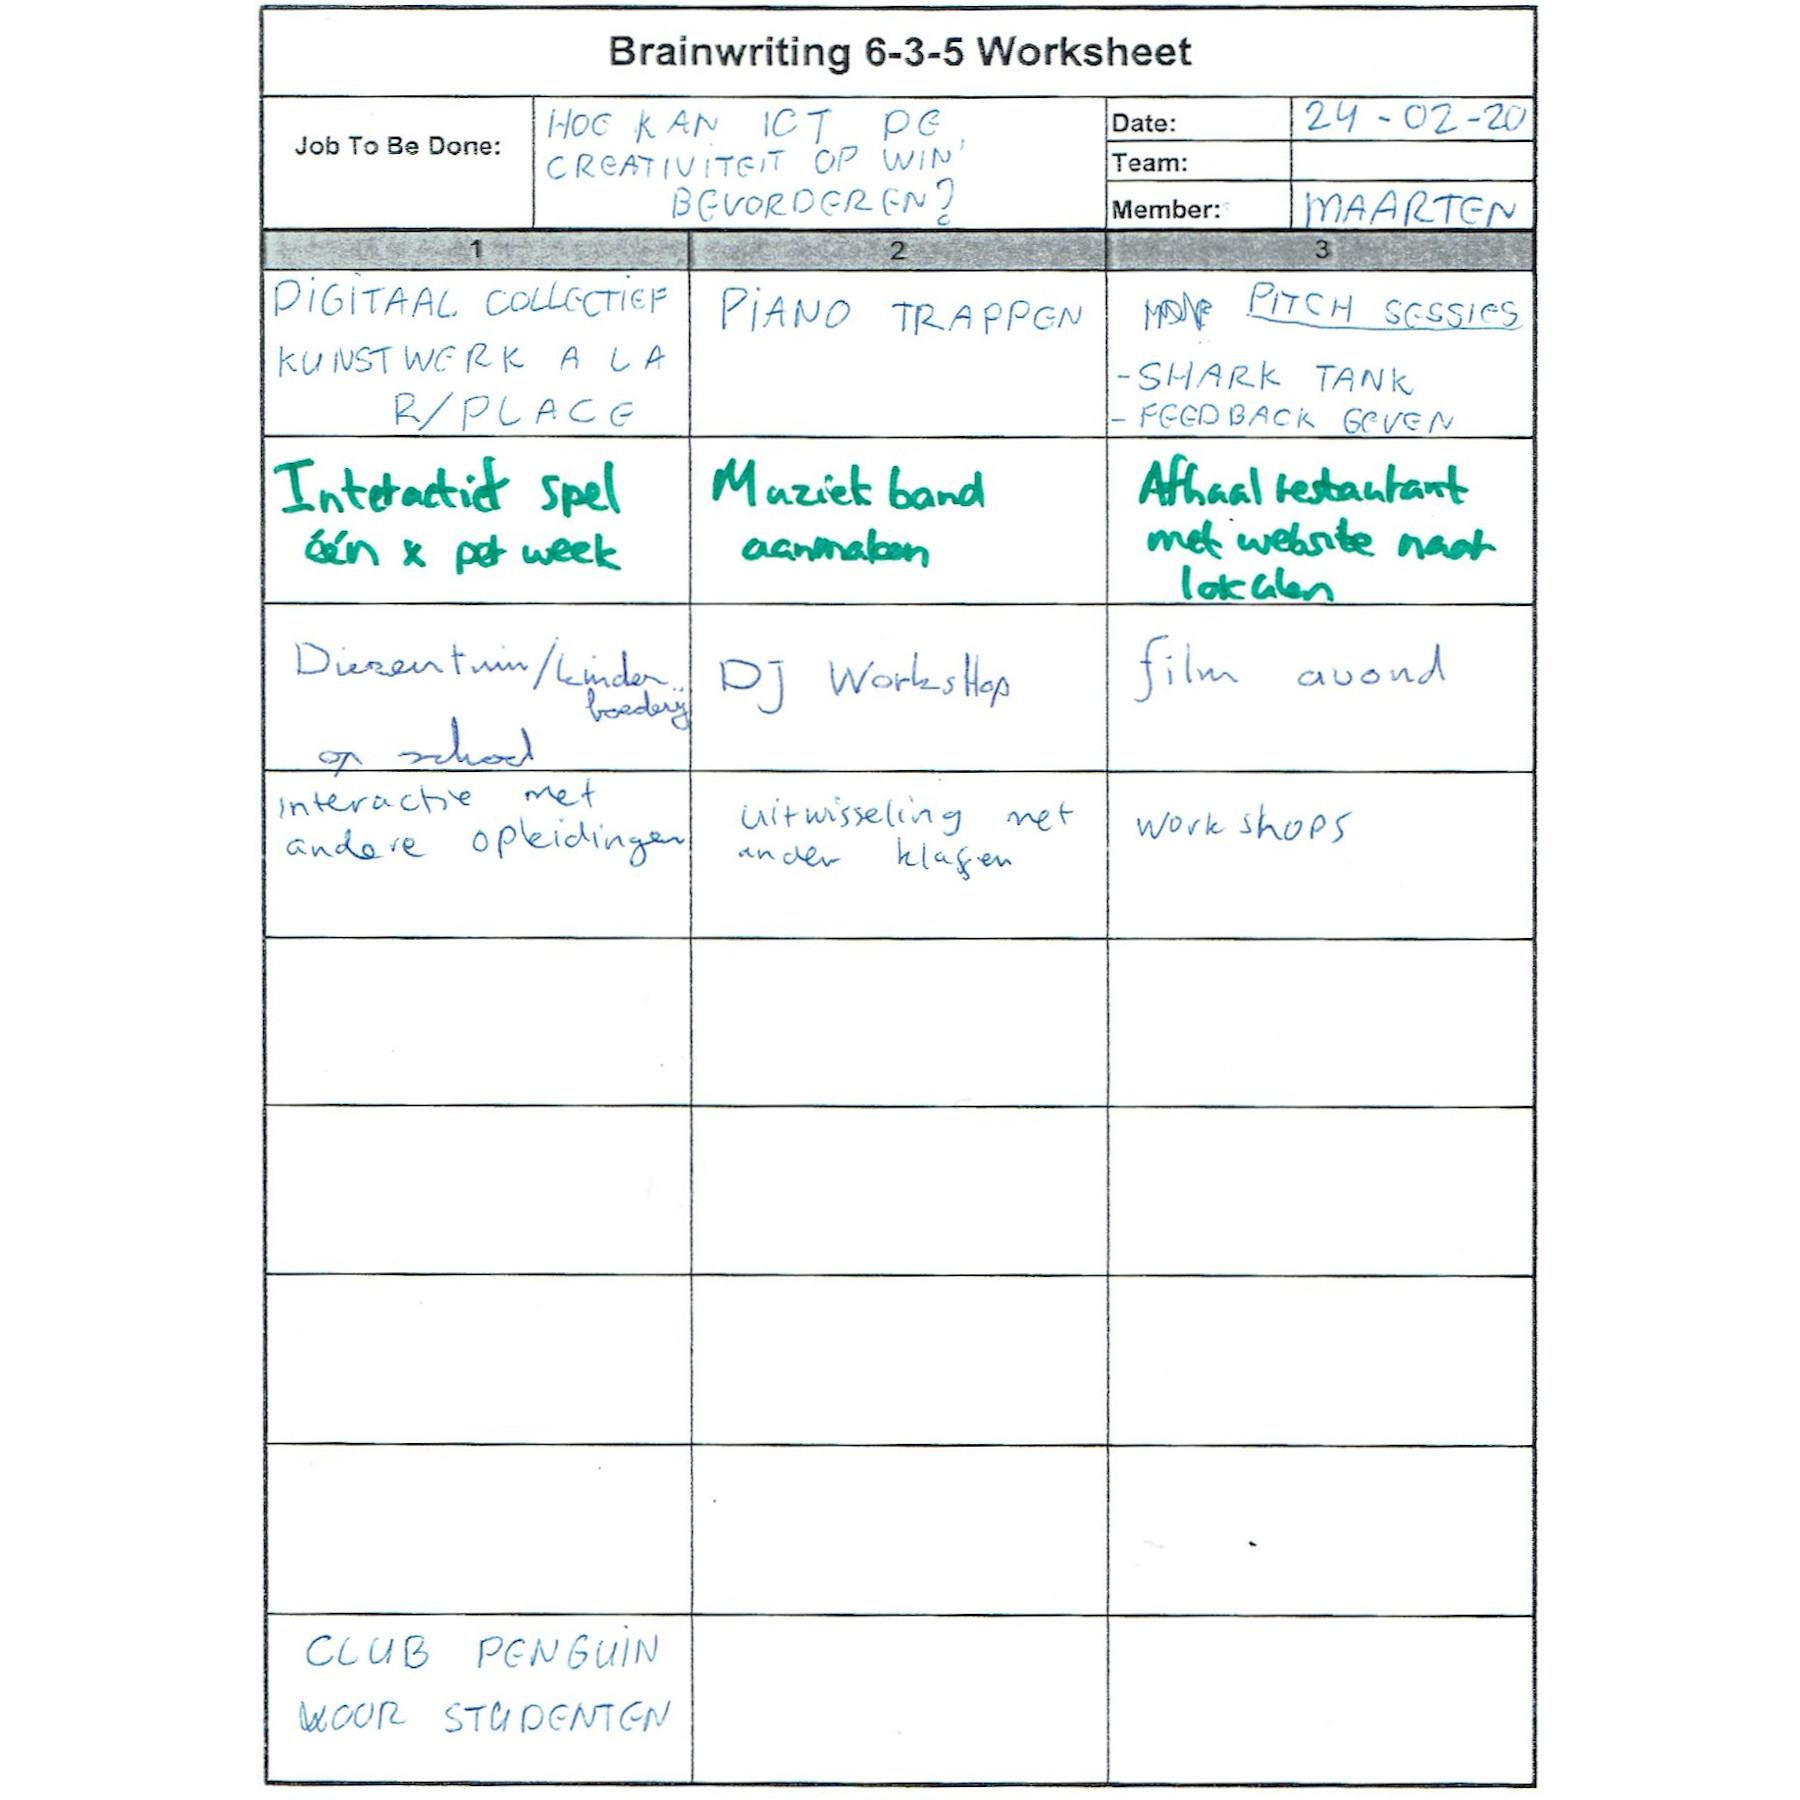 Brainwriting 6-3-5 Worksheet
Job To Be Done:
HOE KAN ICT DE
CREATIVITEIT OP WIN'
BEVORDEREN?
Date: 24-02-20
Team:
Member: MAARTEN
1 2 3
DIGITAAL COLLECTIEF
KUNSTWERK A LA
R/PLACE
PIANO TRAPPEN
PITCH SESSIES
- SHARK TANK
- FEEDBACK GEVEN
Interactief spel
één x per week
Muziek band
aanmaken
Afhaal restaurant
met website naar
lokalen
Dierentuin/kinder
boederij
op school
DJ WorksHop
film avond
interactie met
andere opleidingen
uitwisseling met
ander klassen
workshops
CLUB PENGUIN
VOOR STUDENTEN